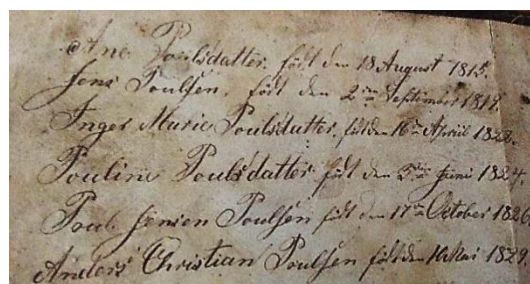 Ane Poulsdatter, født den 18 August 1815.
Jens Poulsen, født den 2den September 1819.
Inger Marie Poulsdatter, født den 16de April 1822.
Pouline Poulsdatter født den 5de Juni 1824
Poul Jensen Poulsen født den 17de October 1826
Anders Christian Poulsen født den Mai 1829.